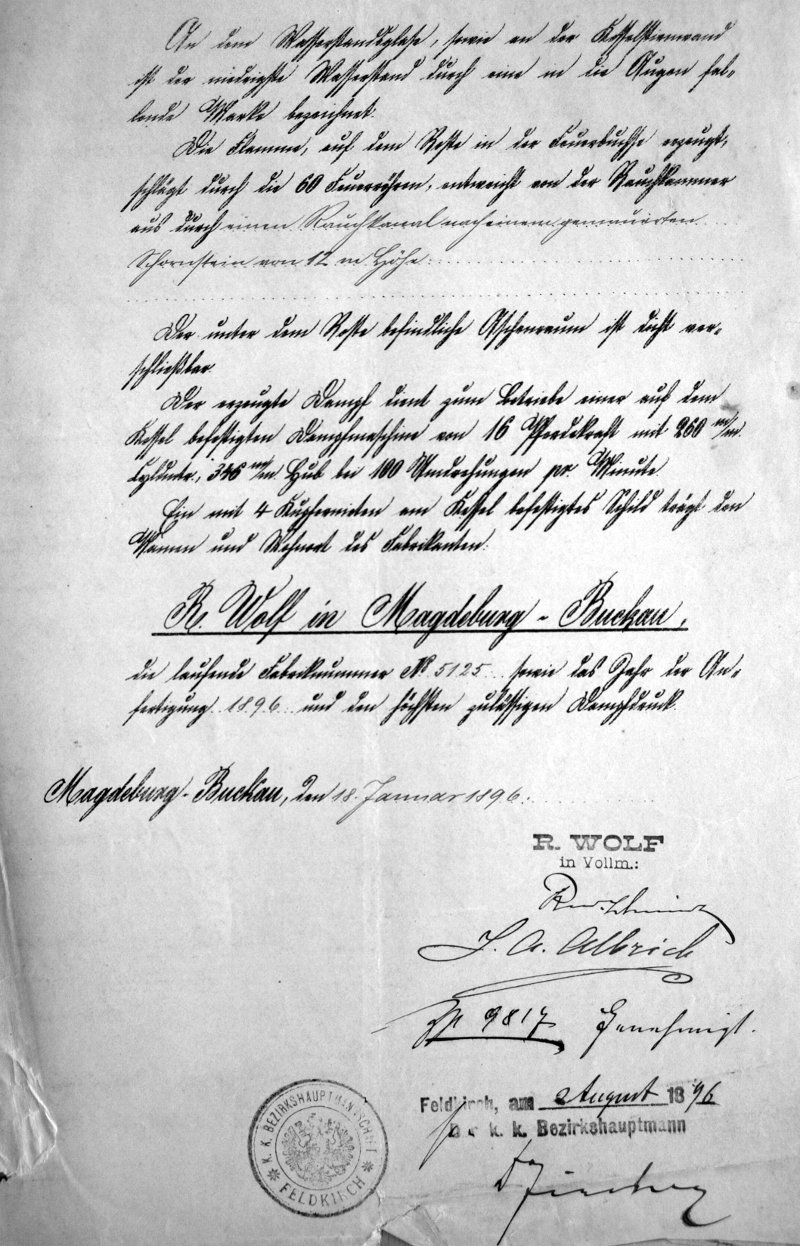 An dem Wasserstandsglase, sowie an der Kesselstirnwand
ist der niedrigste Wasserstand durch eine in die Augen fal-
lende Marke bezeichnet.
Die Flamme, auf dem Roste in der Feuerbuchse erzeugt,
schlägt durch die 60 Feuerröhren, entweicht von der Rauchkammer
aus durch einen Rauchkanal nach einem gemauerten
Schornstein von 12 m Höhe.
Der unter dem Roste befindliche Aschenraum ist dicht ver-
schließbar.
Der erzeugte Dampf dient zum Betriebe einer auf dem
Kessel befestigten Dampfmaschine von 16 Pferdekraft mit 260 m/m.
Cylinder, 346 m/m. Hub bei 100 Umdrehungen pr. Minute
Ein mit 4 Kupfernieten am Kessel befestigtes Schild trägt den
Namen und Wohnort des Fabrikanten:
R. Wolf in Magdeburg-Buckau,
die laufende Fabriknummer No 5125 sowie das Jahr der An-
fertigung 1896 und den höchsten zulässigen Dampfdruck.
Magdeburg-Buckau, den 18. Januar 1896.
R. WOLF
in Vollm.:
J. A. Albrich
9817 Genehmigt.
Feldkirch, am August 1896
Der k. k. Bezirkshauptmann
K. K. BEZIRKSHAUPTMANNSCHAFT
FELDKIRCH